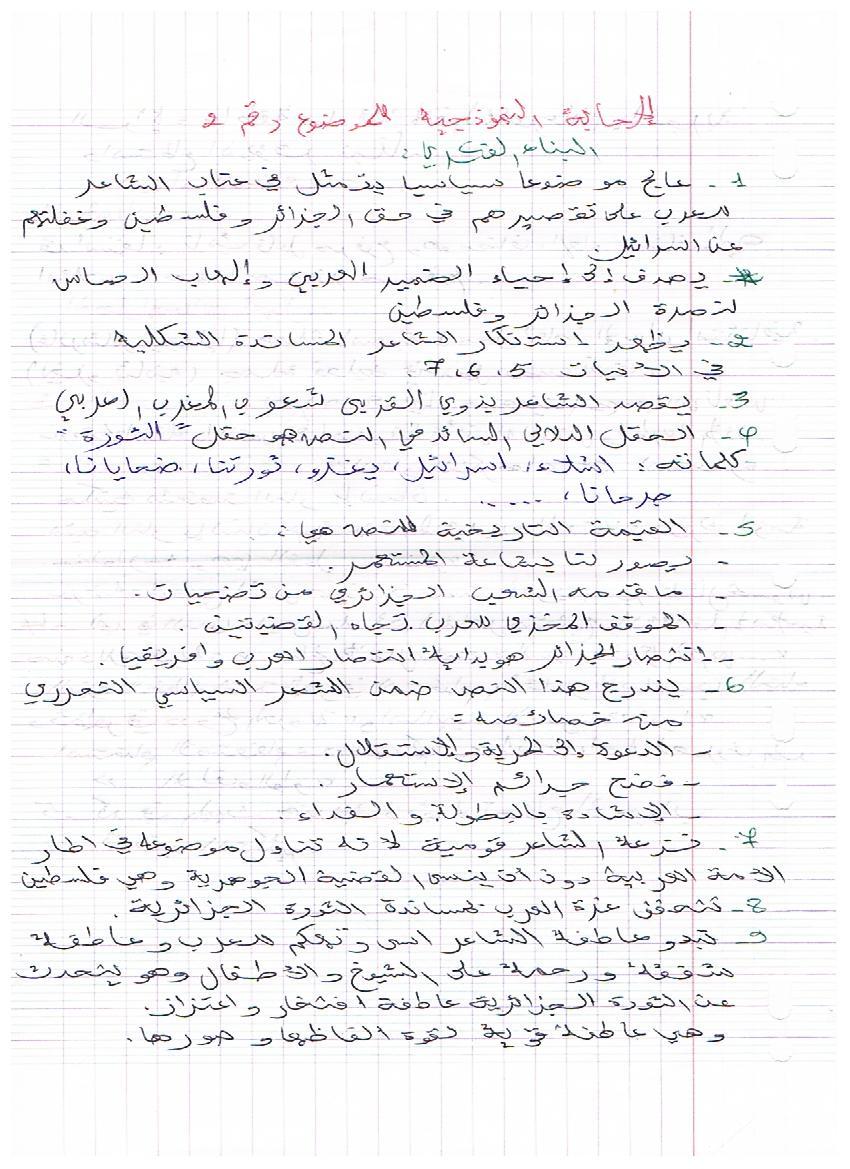 الإجابة النموذجية للموضوع رقم 2
البناء الفكري:
1- عالج موضوعا سياسيا يتمثل في عتاب الشاعر
للعرب على تقصيرهم في حق الجزائر وفلسطين وغفلتهم
عن اسرائيل.
- يهدف إلى إحياء الضمير العربي وإلهاب الاحساس
لنصرة الجزائر وفلسطين
2- يظهر استنكار الشاعر المساندة الشكلية
في الأبيات 5، 6، 7.
3- يقصد الشاعر بذوي القربى شعوب المغرب العربي
4- الحقل الدلالي السائد في النص هو حقل "الثورة"
كلماته: اشلاء، اسرائيل، يغزو، ثورتنا، ضحايانا،
جرحانا، .....
5- القيمة التاريخية للنص هي:
- يصور لنا بشاعة المستعمر.
- ما قدمه الشعب الجزائري من تضحيات.
- الموقف المخزي للعرب تجاه القضيتين.
- انتصار الجزائر هو بداية انتصار العرب وافريقيا.
6- يندرج هذا النص ضمن الشعر السياسي التحرري
من خصائصه:
- الدعوة إلى الحرية والاستقلال.
- فضح جرائم الإستعمار.
- الإشادة بالبطولة والفداء.
7- نزعة الشاعر قومية لانه تناول موضوعه في اطار
الامة العربية دون أن ينسى القضية الجوهرية وهي فلسطين
8- تتحقق عزة العرب بمساندة الثورة الجزائرية.
9- تبدو عاطفة الشاعر اسى وتهكم للعرب وعاطفة
شفقة ورحمة على الشيوخ والأطفال وهو يتحدث
عن الثورة الجزائرية عاطفة افتخار واعتزاز.
وهي عاطفة قوية لقوة الفاظها وصورها.